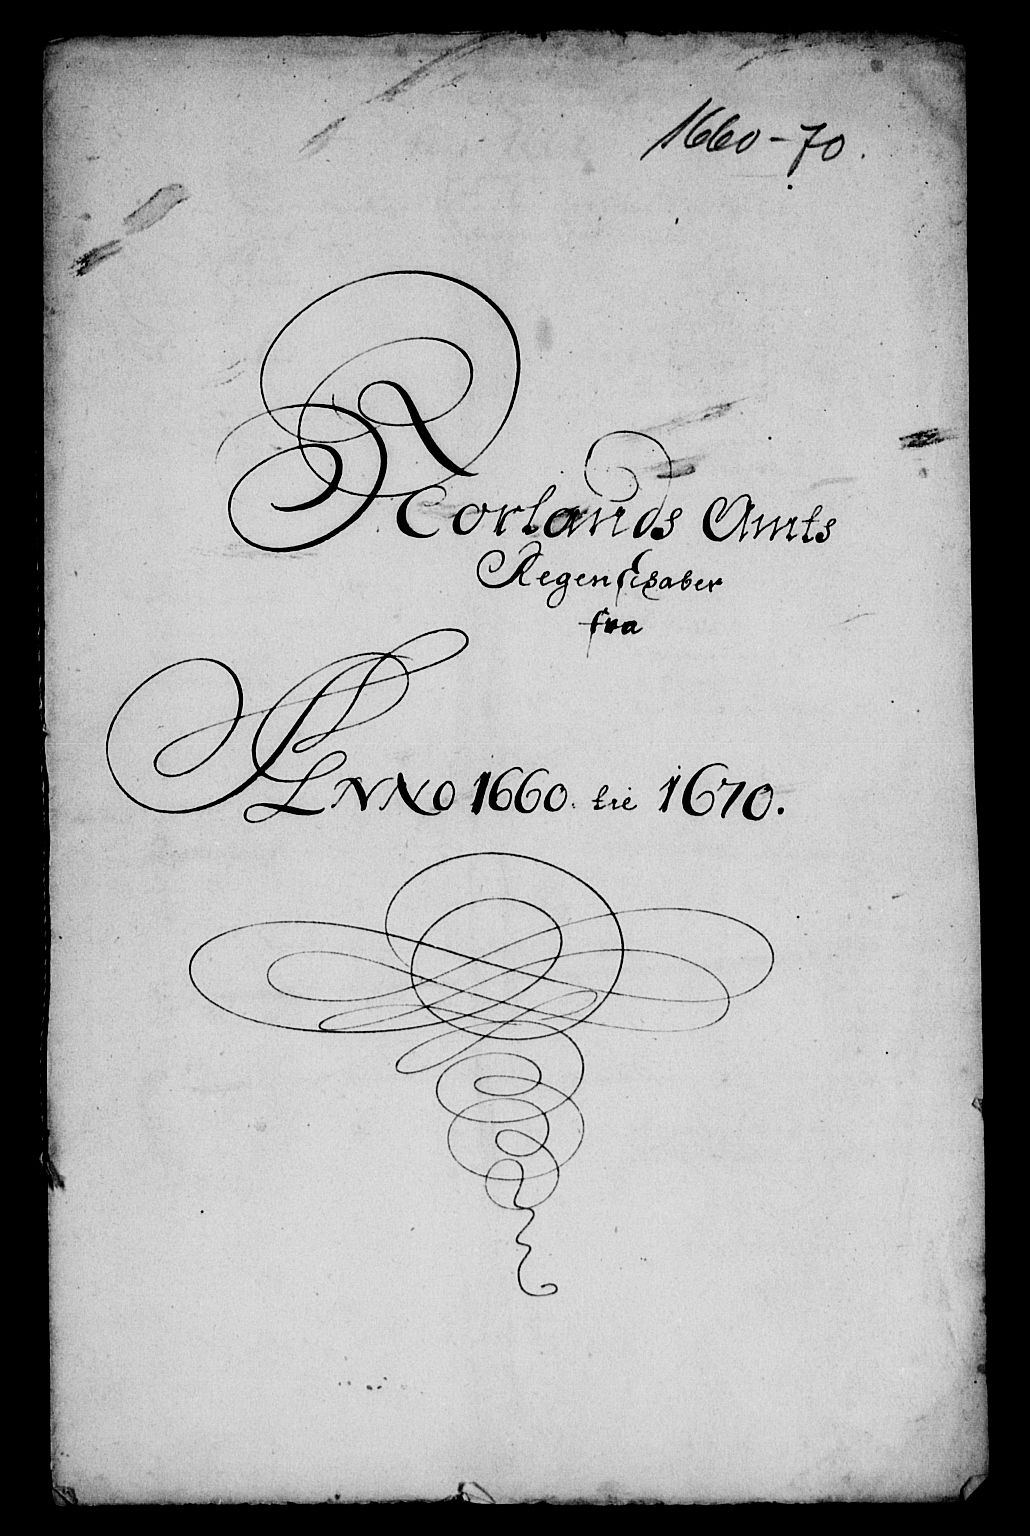 1660-70.
Norlands Amts
Regenschaber
fra
ANNO 1660. tie 1670.